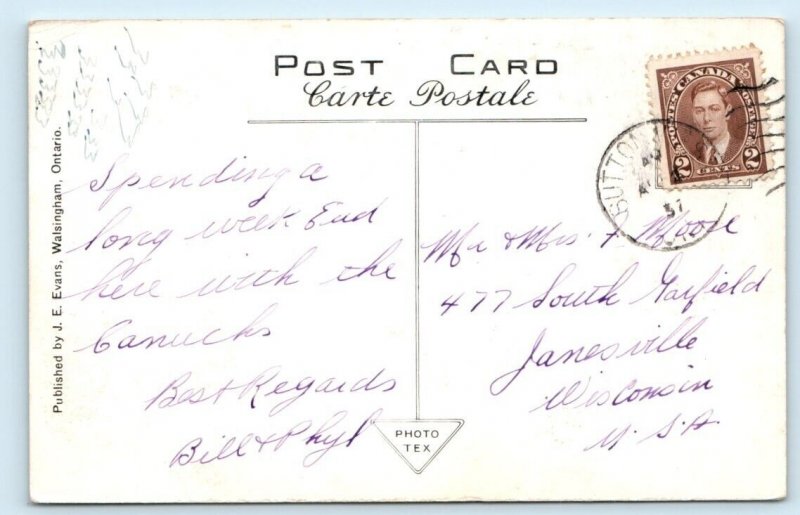 POST CARD
Carte Postale
CANADA
POSTES POSTAGE
2 CENTS 2
SUTTON
37
Published by J. E. Evans, Walsingham, Ontario.
Spending a
long week End
here with the
Canucks
Best Regards
Bill & Phyl
Mr & Mrs. F Moore
477 South Garfield
Janesville
Wisconsin
U.S.A.
PHOTO
TEX